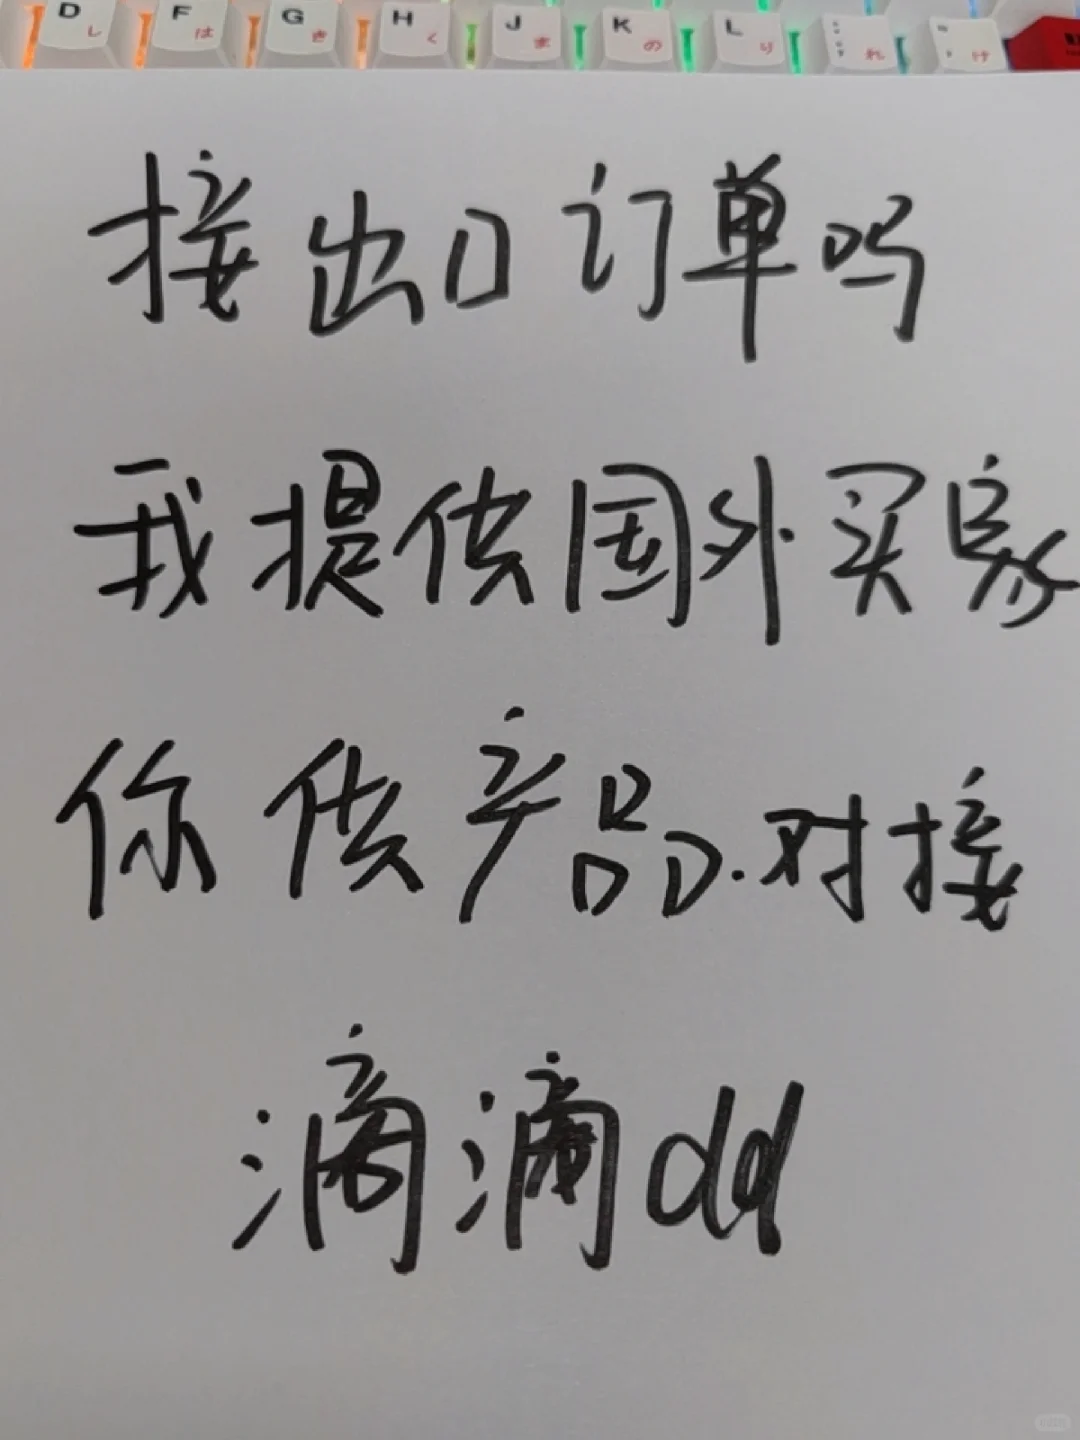 D し F は G き H く J ま K の L り れ け
接出口订单吗
我提供国外买家
你供产品.对接
滴滴dd